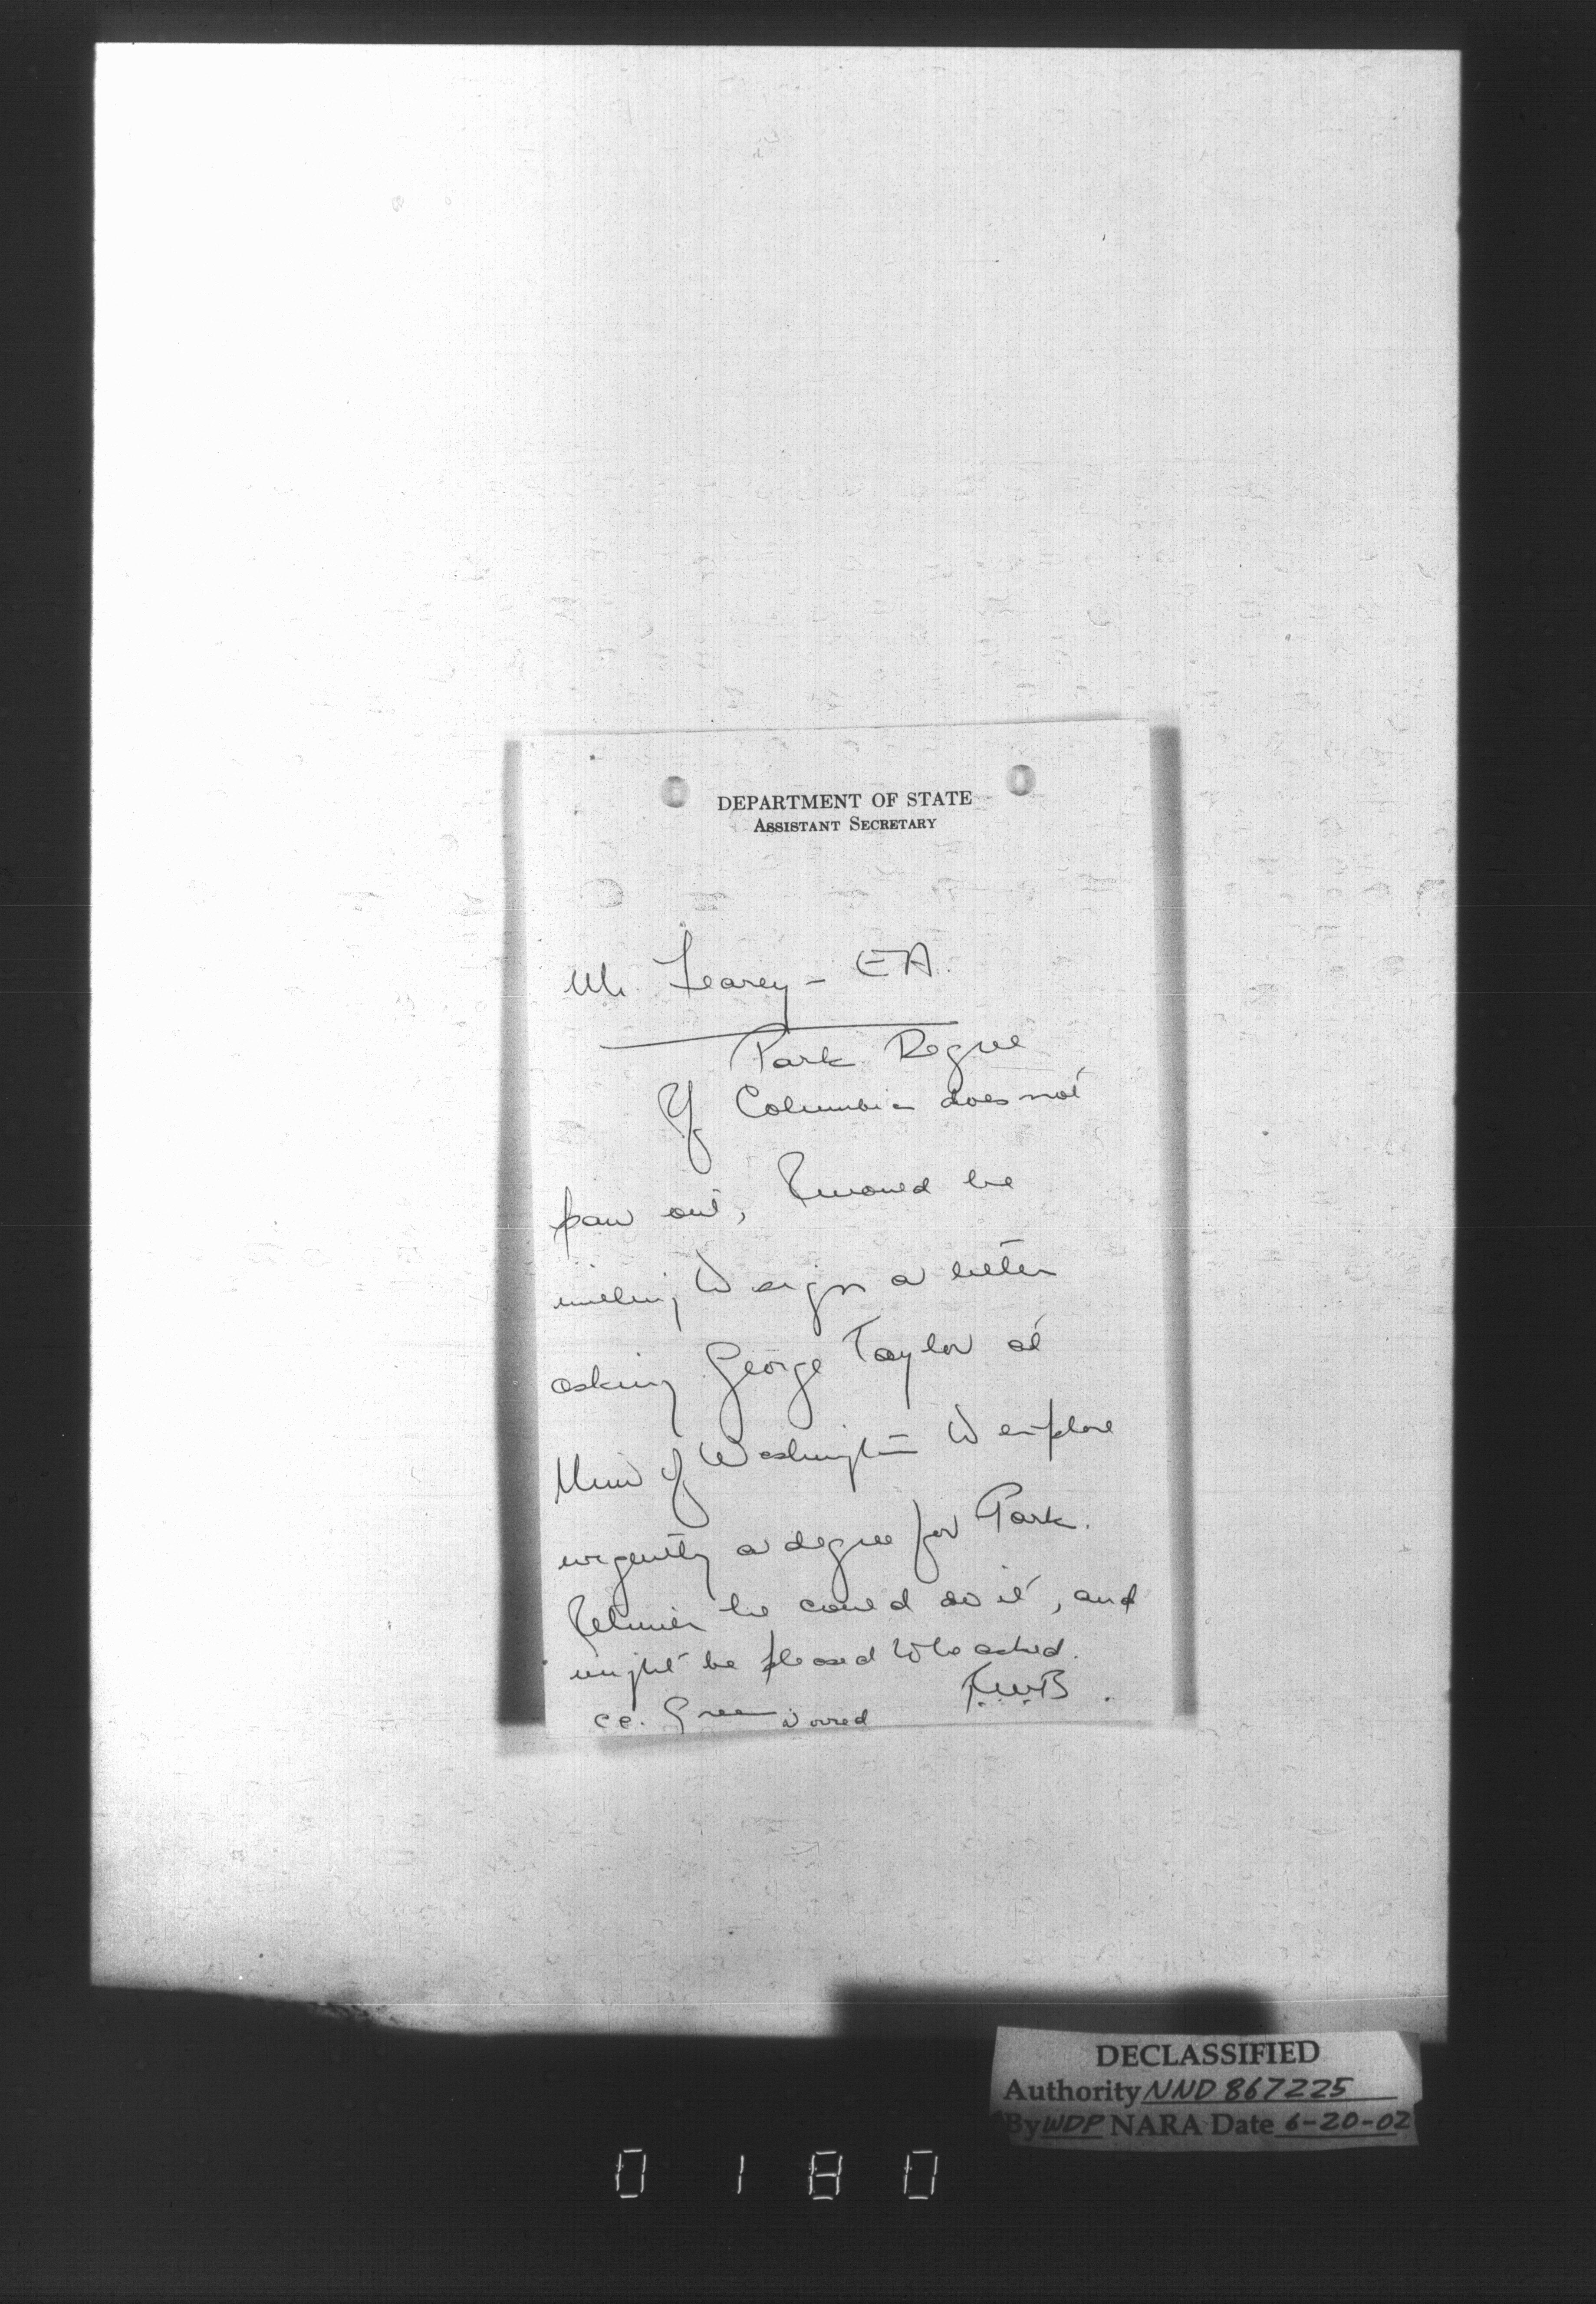 DEPARTMENT OF STATE
ASSISTANT SECRETARY
Mr. Fearey - EA.
Park Degree
If Columbia does not
pan out, I would be
willing to sign a letter
asking George Taylor at
Univ of Washington to explore
urgently a degree for Park.
I think he could do it, and
might be pleased to be asked.
RWB.
cc. Green
DECLASSIFIED
Authority NND 867225
By WDP NARA Date 6-20-02
0180